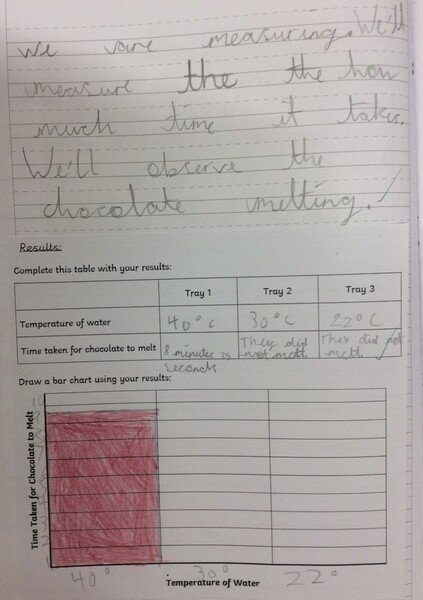 We are measuring. We'll
measure the the how
much time it takes.
We'll observe the
chocolate melting.
Results:
Complete this table with your results:
Tray 1 Tray 2 Tray 3
Temperature of water 40°C 30°C 22°C
Time taken for chocolate to melt 8 minutes 25 seconds They did not melt They did not melt
Draw a bar chart using your results:
Time Taken for Chocolate to Melt
40° 30° 22°
Temperature of Water